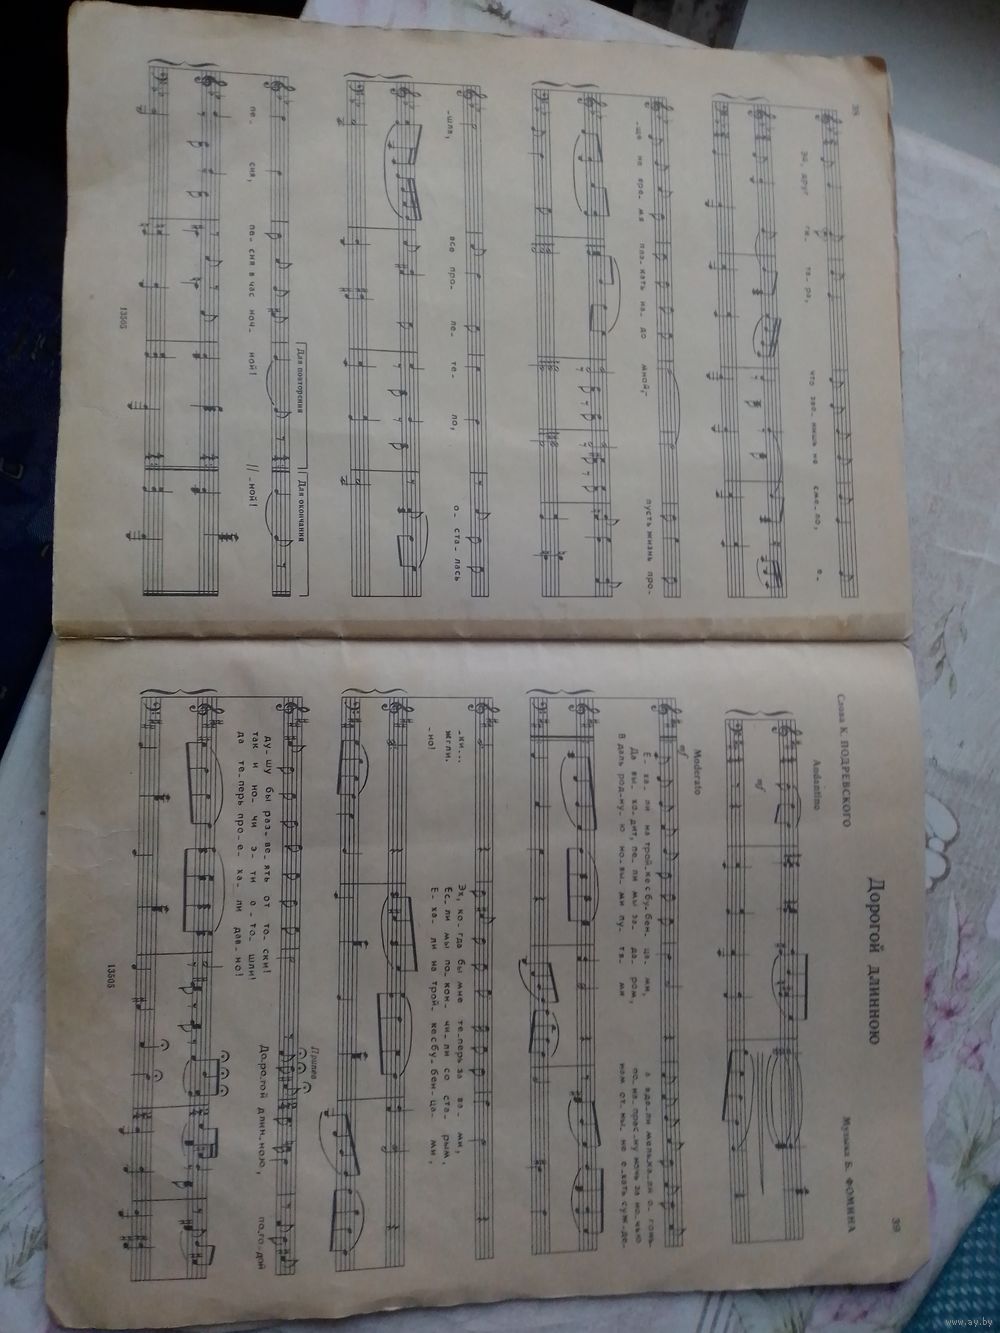 38
эй, друг ги- та- ра, что зве- нишь не- сме- ло, е-
-ще не вре- мя пла- кать на- до мной,- пусть жизнь про-
-шла, все про- ле- те- ло, о- ста- лась
пе- сня, пе- сня в час ноч- ной! // -ной!
Для повторения
Для окончания
13505
39
Дорогой длинною
Слова К. ПОДРЕВСКОГО
Музыка Б. ФОМИНА
Andantino
mf
Moderato
mf
Е- ха- ли на трой-ке с бу-бен- ца- ми, а вда-ли мель-ка-ли о- гонь-
Да вы- хо-дит, пе- ли мы за- да- ром, по- на- прас-ну ночь за но-чью
В даль род-ну- ю но-вы- ми пу- тя- ми нам от-ны- не е-хать суж-де-
-ки... Эх, ко-гда бы мне те-перь за ва- ми,
жгли. Ес-ли мы по-кон- чи-ли со ста- рым,
-но! Е- ха- ли на трой- ке с бу-бен-ца- ми,
Припев
ду-шу бы раз-ве-ять от то- ски! До-ро-гой длин-но-ю, по-го-дой
так и но- чи э- ти о- то- шли!
да те-перь про-е- ха- ли дав-но!
13505
www.ay.by